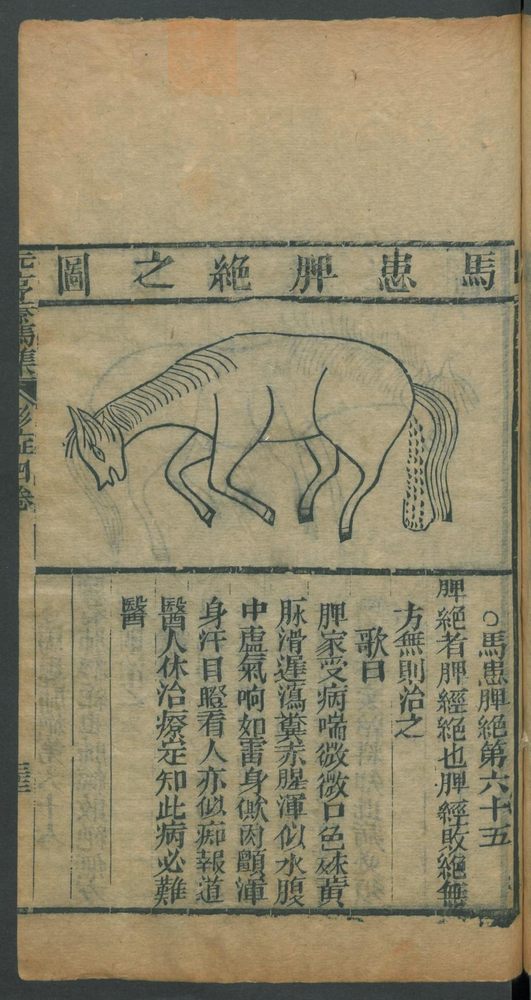 馬患脾絶之圖
○馬患脾絶第六十五
脾絶者脾經絶也脾經敗絶無
方無則治之
歌曰
脾家受病喘微微口色殊黃
脉滑遲瀉糞赤腥渾似水腹
中虛氣响如雷身㑆肉顫渾
身汗目瞪看人亦似痴報道
醫人休治療定知此病必難
醫
元亨療馬集
四卷